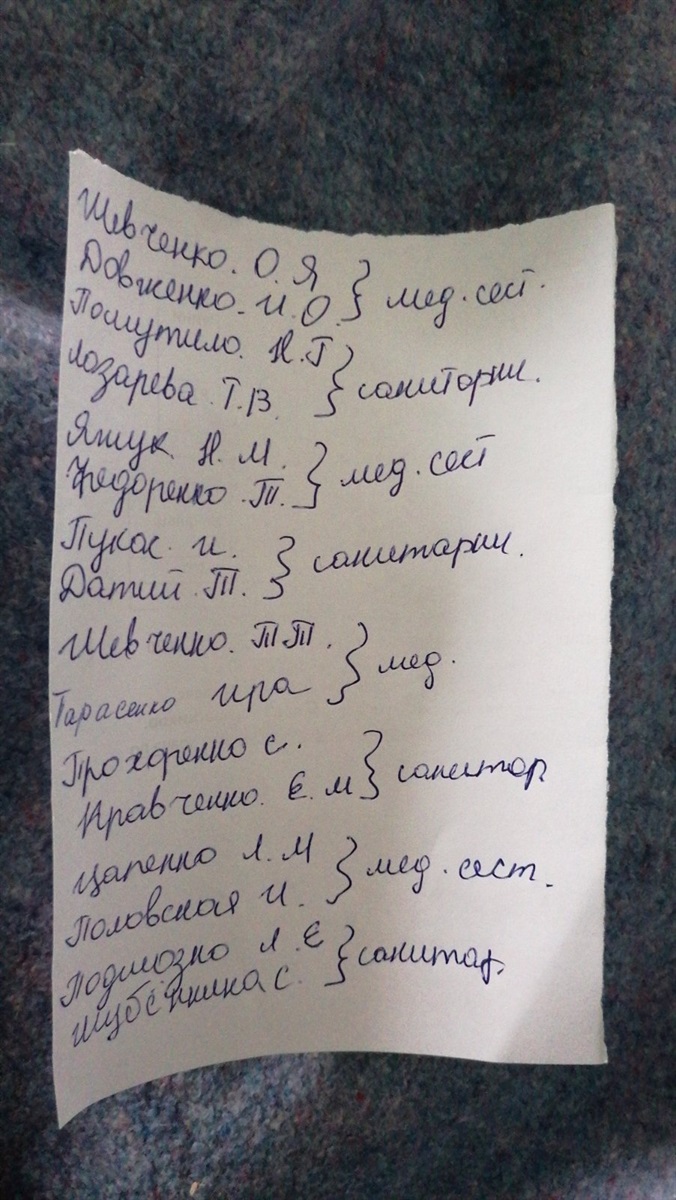 Шевченко. О. Я } мед. сест.
Довженко. И. О.
Помутило. Н. Г } саниторки.
Лазарева. Т. В.
Ящук. Н. М. } мед. сест
Федоренко. Т.
Пукас. И. } санитарки.
Датий. Т.
Шевченко. Т Т. } мед.
Тарасенко ира
Прохоренко с. } санитар
Кравченко. Є. М
Цапенко Л. М } мед. сест.
Половская И.
Л. Є } санитар.
С.